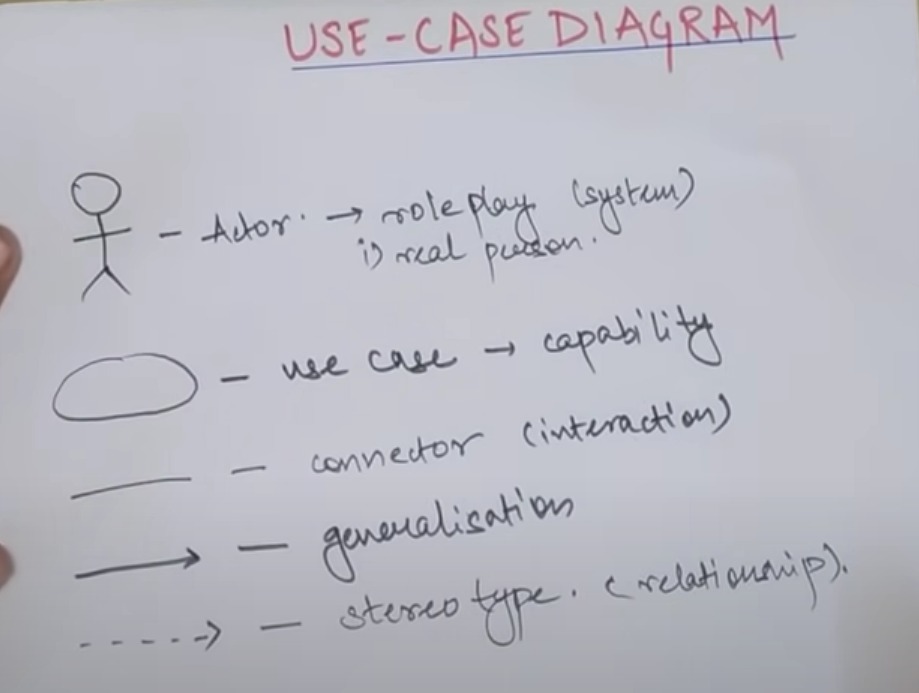 USE-CASE DIAGRAM
- Actor. → role play (system)
i) real person.
- use case → capability
- connector (interaction)
- generalisation
- stereotype. (relationship).